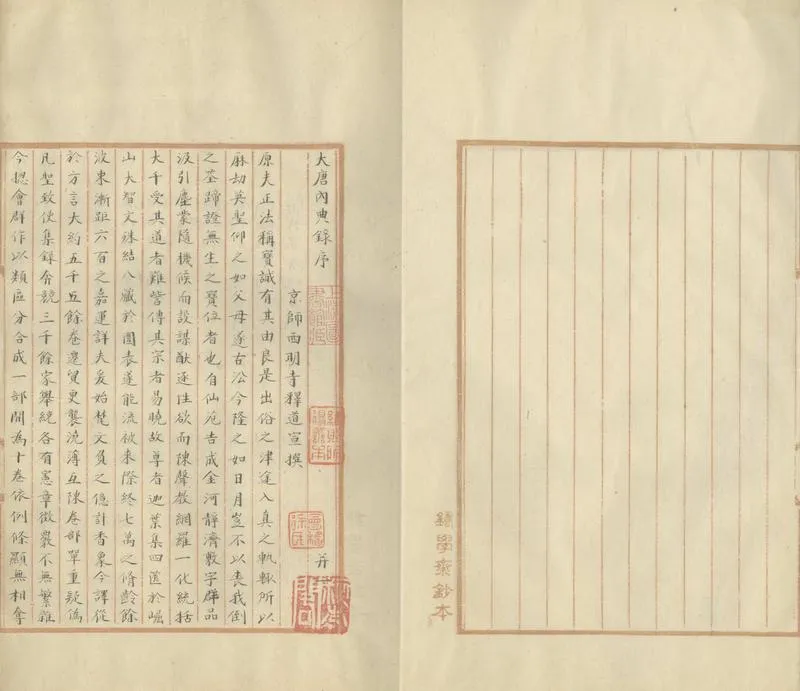 大唐內典錄序　并
京師西明寺釋道宣撰
原夫正法稱寶誠有其由良是出俗之津途入真之軌轍所以
麻劫英聖仰之如父母遂古㳂今隆之如日月豈不以喪我倒
之筌蹄證無生之寶位者也自仙苑告成金河靜濟敷字群品
汲引塵蒙隨機候而設謀猷逐性欲而陳聲教網羅一化統括
大千受其道者難訾傳其宗者易曉故尊者迦葉集四篋於崛
山大智文殊結八藏於圍表遂能流被來際終七萬之脩齡餘
波東漸距六百之嘉運詳夫爰始梵文負之億計香象今譯從
於方言大約五千五餘卷遷貿更襲澆薄互陳卷部單重疑偽
凡聖致使集錄奔競三千餘家舉統各有憲章徵覈不無繁雜
今總會群作以類區分合成一部開為十卷依例條顯無相奪
學齋鈔本